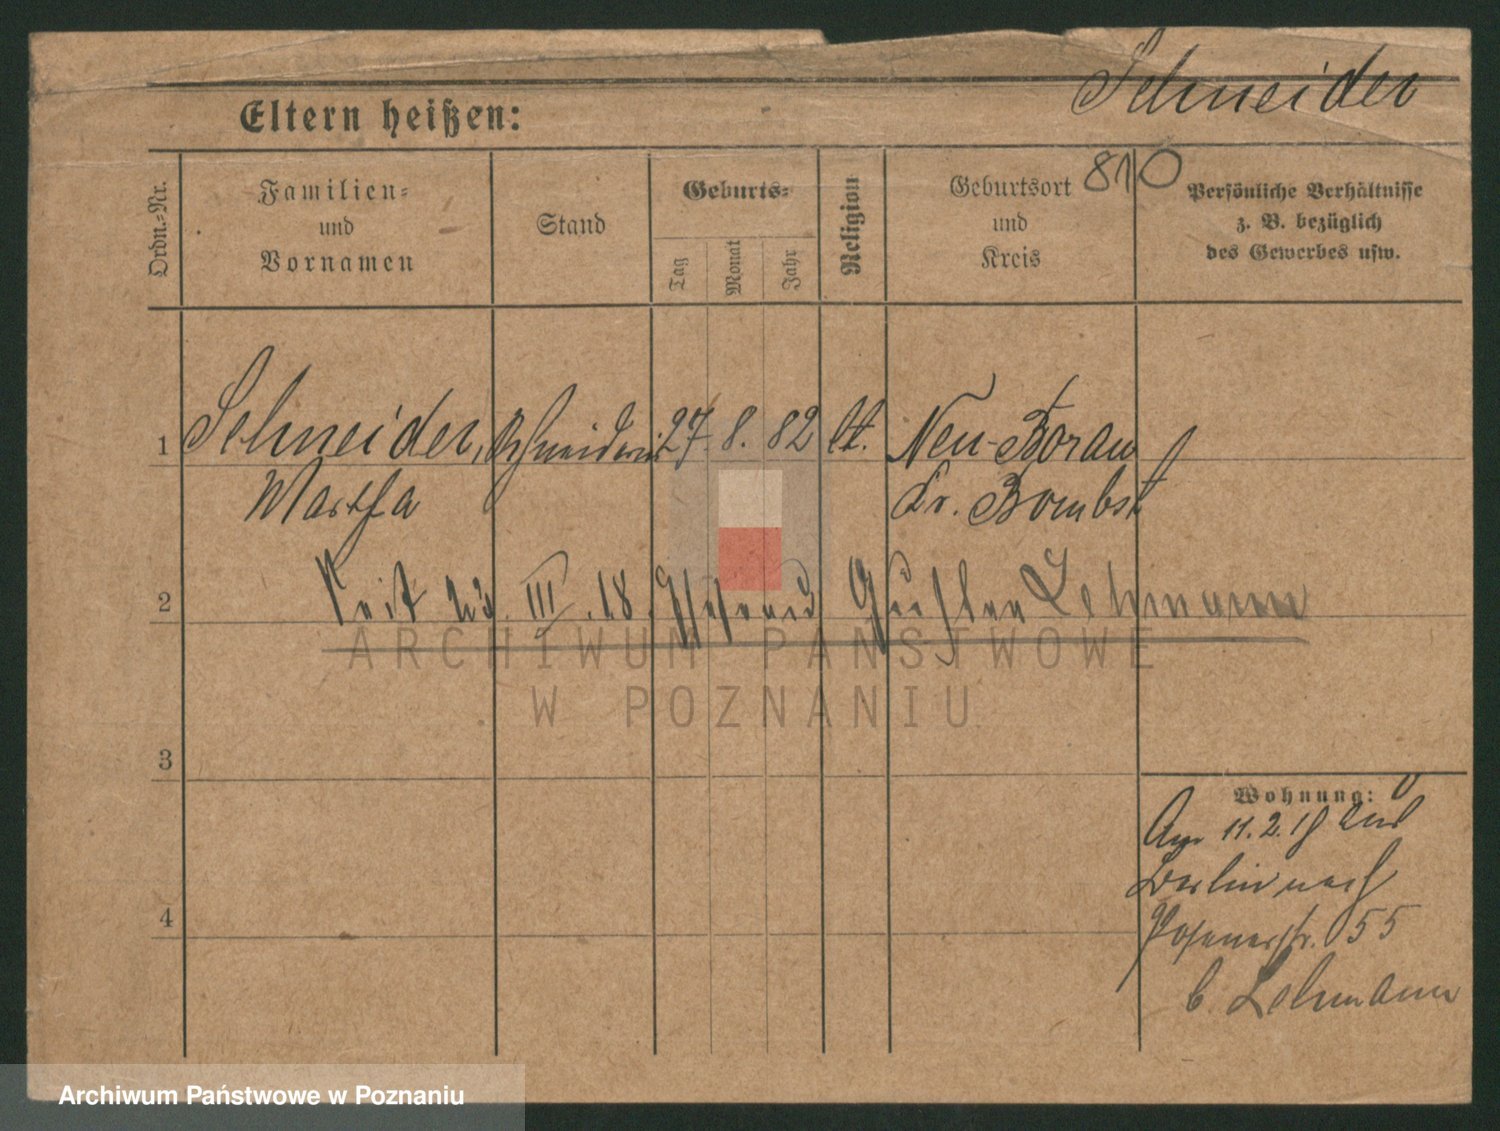 Schneider
Eltern heißen:
810
Ordn.=Nr.
Familien=
und
Vornamen
Stand
Geburts=
Tag
Monat
Jahr
Religion
Geburtsort
und
Kreis
Persönliche Verhältnisse
z. B. bezüglich
des Gewerbes usw.
1 Schneider, Schneiderin 27. 8. 82 Neu-Borau
Martha Kr. Bombst
2 Seit III. 18. Lehmann
ARCHIWUM PAŃSTWOWE
W POZNANIU
3
Wohnung:
Am 11.2.18 aus
Berlin nach
Posenerstr. 55
b. Lehmann
4
Archiwum Państwowe w Poznaniu